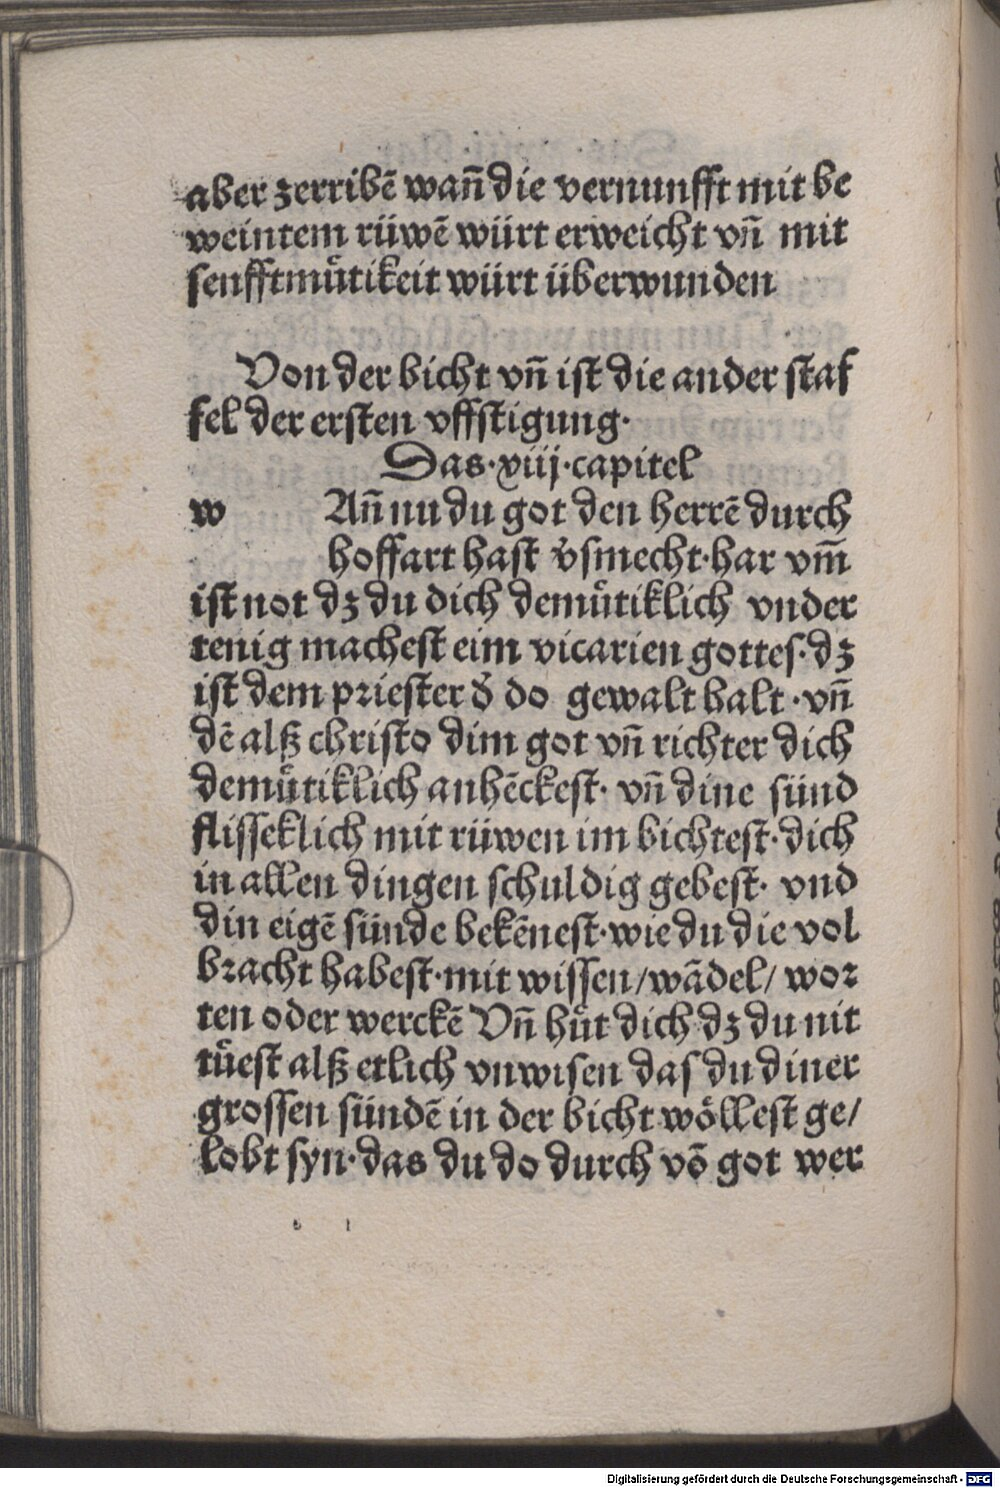 aber zerribē wañ die vernunfft mit be
weintem rüwē würt erweicht vñ mit
senfftmuͤtikeit würt überwunden
Von der bicht vñ ist die ander staf
fel der ersten vffstigung·
Das·xiij·capitel
w Añ nu du got den herrē durch
hoffart hast v̄smecht·har vm̄
ist not dz du dich demuͤtiklich vnder
tenig machest eim vicarien gottes·dz
ist dem priester d̄ do gewalt halt·vñ
dē alß christo dim got vñ richter dich
demuͤtiklich anhēckest· vñ dine sünd
flisseklich mit rüwen im bichtest·dich
in allen dingen schuldig gebest· vnd
din eigē sünde bekēnest·wie du die vol
bracht habest·mit wissen/wādel/ wor
ten oder werckē Vñ huͤt dich dz du nit
tuͤest alß etlich vnwisen das du diner
grossen sündē in der bicht woͤllest ge/
lobt syn·das du do durch vō got wer
Digitalisierung gefördert durch die Deutsche Forschungsgemeinschaft - DFG